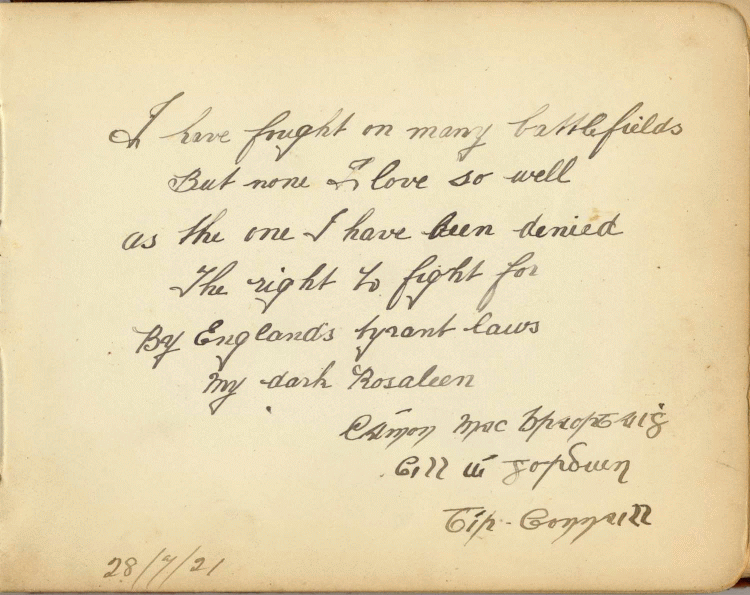 I have fought on many battlefields
But none I love so well
as the one I have been denied
The right to fight for
By Englands tyrant laws
My dark Rosaleen
Eámon Mac
Cill
Tír-Connaill
28/7/21